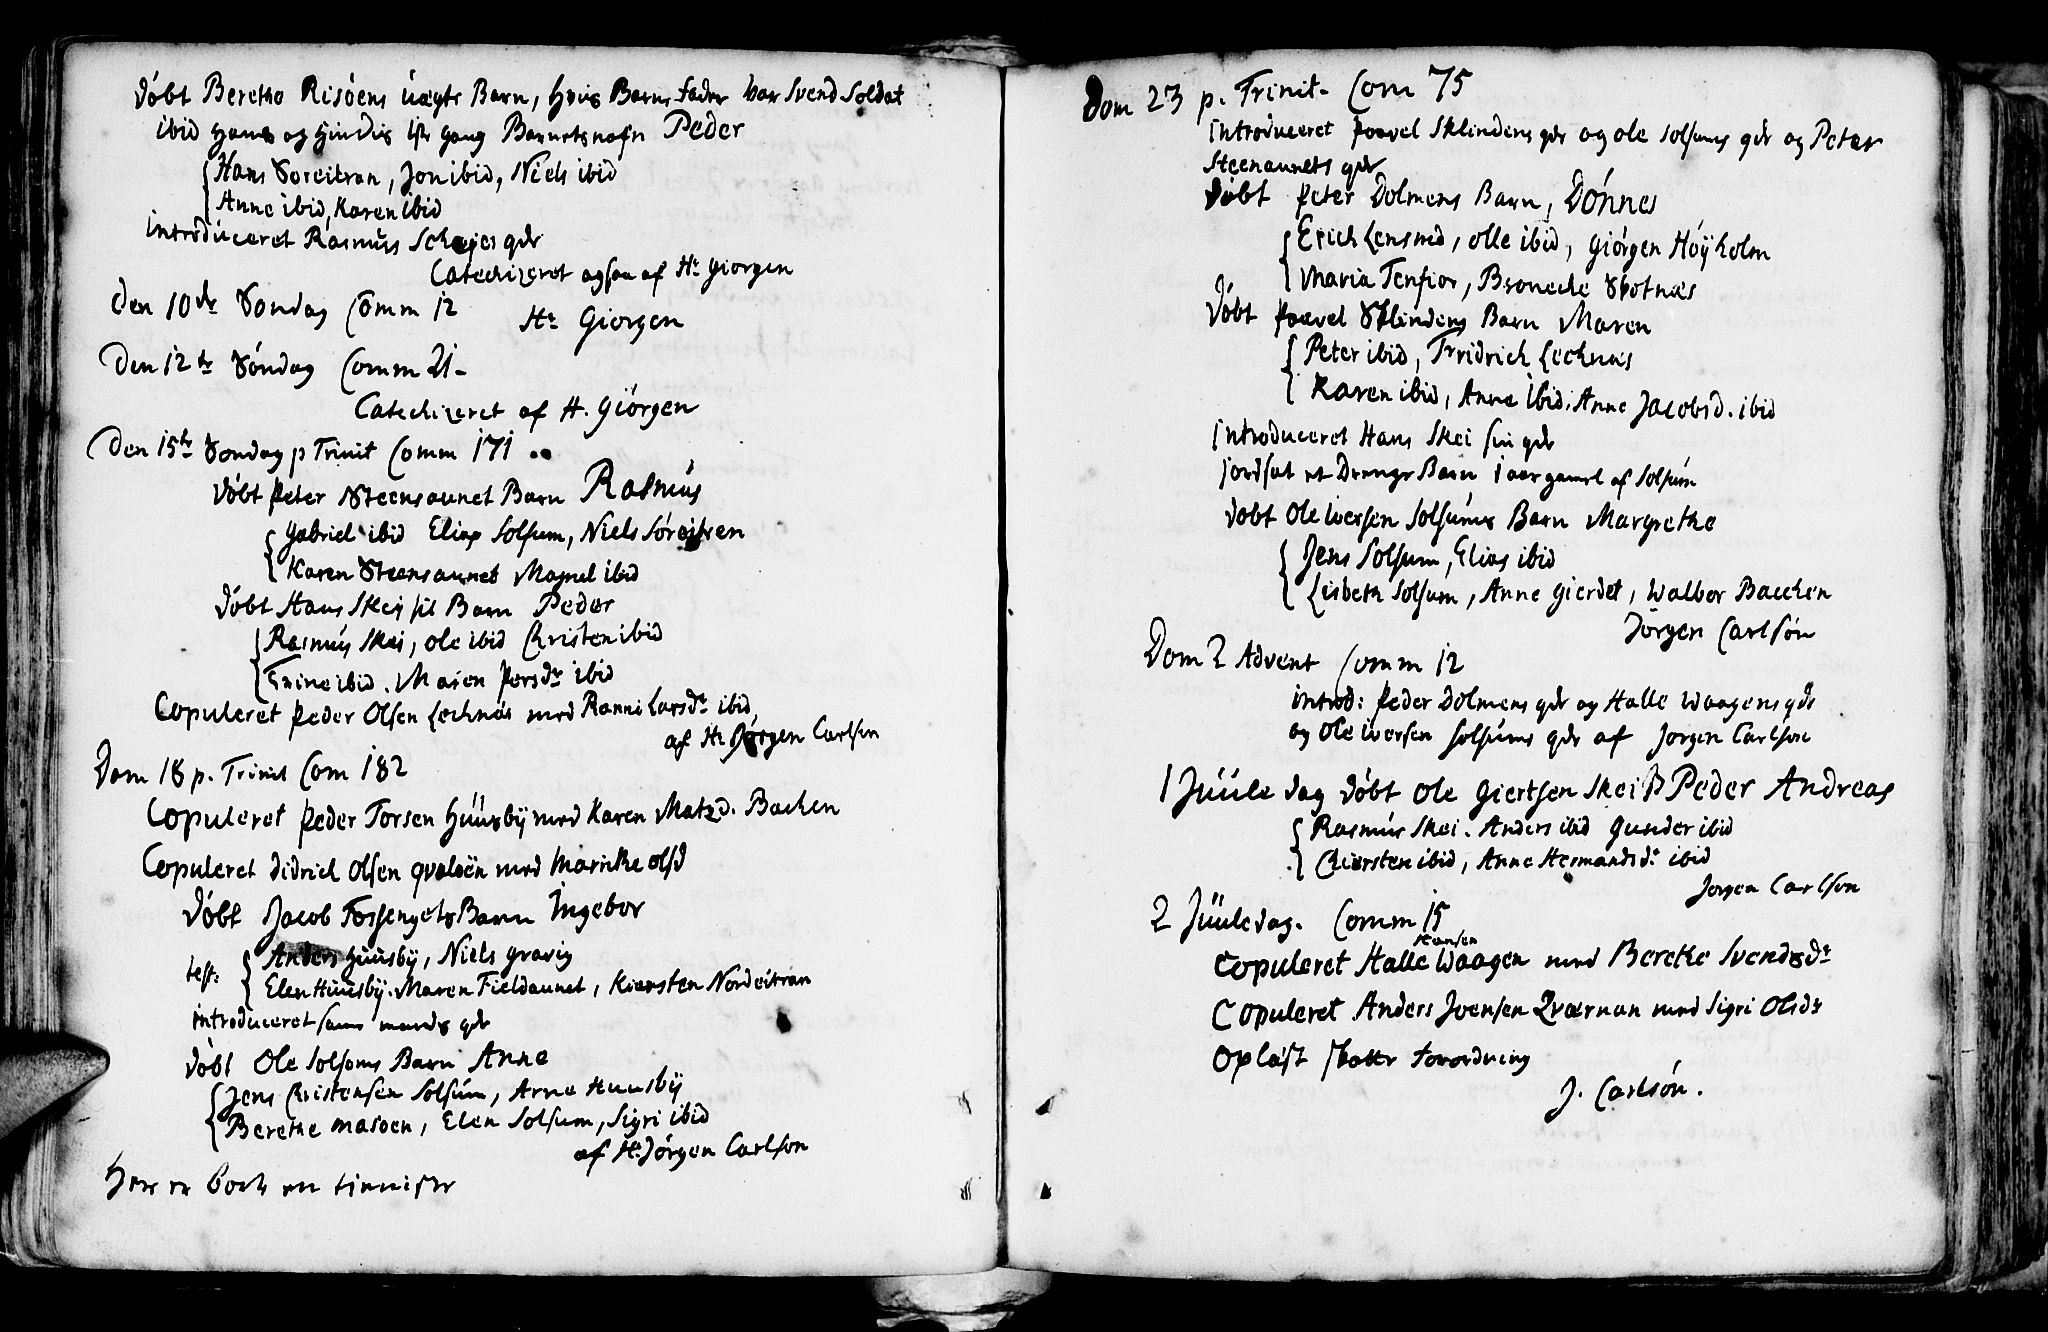 døbt Beretha Risøens uægte Barn, hvis Barne fader var Svend Soldat
ibid hans og hindis 1ste gang Barnets nafn Peder
Hans Soreitran, Jon ibid, Niels ibid
Anne ibid, Karen ibid
introduceret Rasmus Schejes qde
Catechizeret ogsaa af Hr Giorgen
Den 10de Søndag Comm 12
Hr Giorgen
Den 12te Søndag Comm 21-
Catechizeret af H. Giørgen
Den 15te Søndag p Trinit Comm 171
døbt Peter Steensaunet Barn Rasmus
Gabriel ibid Elias Solsum, Niels Søreitren
Karen Steensaunet Magnel ibid
døbt Hans Skej sit Barn Peder
Rasmus Skei, ole ibid Christen ibid
Trine ibid. Maren Persdr ibid
Copuleret Peder Olsen Lecknæs med Ranni Larsdr ibid
af Hr Jørgen Carlsen
Dom 18 p. Trinit Com 182
Copuleret Peder Torsen Huusbÿ med Karen Matzd. Bachen
Copuleret didrich Olsen qvaløen med Marrike olsd
døbt Jacob Fossengets Barn Ingebor
test: Anders Huusbÿ, Niels gravig
Elen Huusbÿ. Maren Fieldaunet, Kiersten Nordeitran
introduceret samme mands qde
døbt Ole Solsoms Barn Anne
Jens Christensen Solsum, Arne Huusbÿ
Berethe masoen, Elen Solsum, Sigri ibid
af Hr Jørgen Carlson
Her er Bort en
Dom 23 p. Trinit- Com 75
introduceret Paavel Sklindens qde og ole solsums qde og Peter
Steenaunets qde
døbt Peter Dolmens Barn, Dønnes
Erich Lensmd, olle ibid, Giørgen Høÿholm
Maria Tenfior, Bronecke Skotnæs
døbt Paavel Sklindens Barn Maren
Peter ibid, Fridrich Lecknæs
Karen ibid, Anne ibid, Anne Jacobsd. ibid
introduceret Hans Skei sin qde
jordsat et Drenge Barn 1 aar gamel af Solsum
døbt Ole iversen Solsums Barn Margrethe
Jens Solsum, Elias ibid
Lisbeth Solsum, Anne gierdet, Walbor Bacchen
Jørgen Carlsøn
Dom 2 Advent Comm 12
introd: Peder Dolmens qde og Halle Waagens qde
og Ole iversen solsums qde af Jørgen Carlson
1 Juule dag døbt Ole Giertsen Skei B Peder Andreas
Rasmus Skei. Anders ibid Gunder ibid
Chiersten ibid, Anne Hermandsdr ibid
Jørgen Carlson
2 Juuledag. Comm 15
Hansen
Copuleret Halle Waagen med Berethe Svendsdr
Copuleret Anders Joensen Qværnan med Sigri Olsdr
Oplæst skatte forordning
J. Carlsøn.